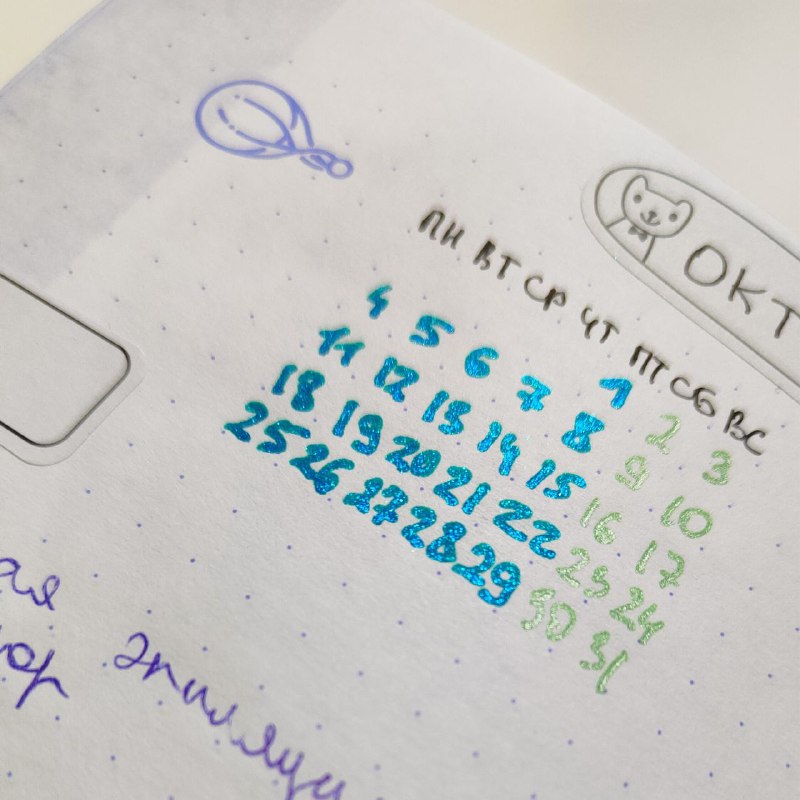 ОКТ
ПН ВТ СР ЧТ ПТ СБ ВС
1 2 3
4 5 6 7 8 9 10
11 12 13 14 15 16 17
18 19 20 21 22 23 24
25 26 27 28 29 30 31